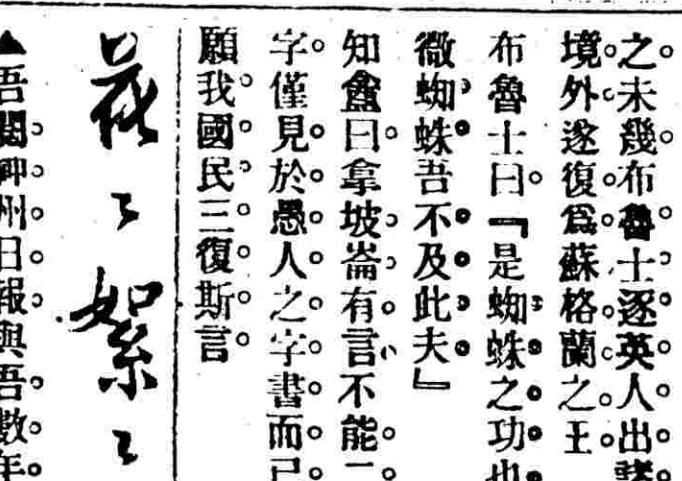 之未幾布魯士逐英人出諸
境外遂復爲蘇格蘭之王
布魯士曰『是蜘蛛之功也
微蜘蛛吾不及此夫』
知盦曰拿坡崙有言不能一
字僅見於愚人之字書而已
願我國民三復斯言
絮々
▲吾閱神州日報與吾數年